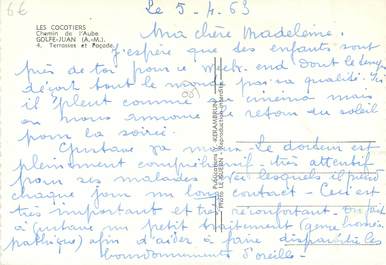 6€
Le 5-4-63
LES COCOTIERS
Chemin de l'Aube
GOLFE-JUAN (A.-M.)
4. Terrasses et Façade
Ma chère Madeleine.
J'espère que des enfants sont
près de toi pour ce Week-end dont le temps
déçoit tout le monde par sa qualité. Ici
il pleut comme au cinéma mais
on nous annonce le retour du soleil
pour la soirée.
Gustave va mieux. Le docteur est
pleinement compréhensif - très attentif
pour ses malades avec lesquels il prend
chaque jour un long contact - Ceci est
très important et très réconfortant.
à Gustave un petit traitement (genre homéo-
pathique) afin d'aider à faire disparaître les
bourdonnements d'oreille.
Publications KERAMBRUN
Photo LE GUERN - Reproduction interdite